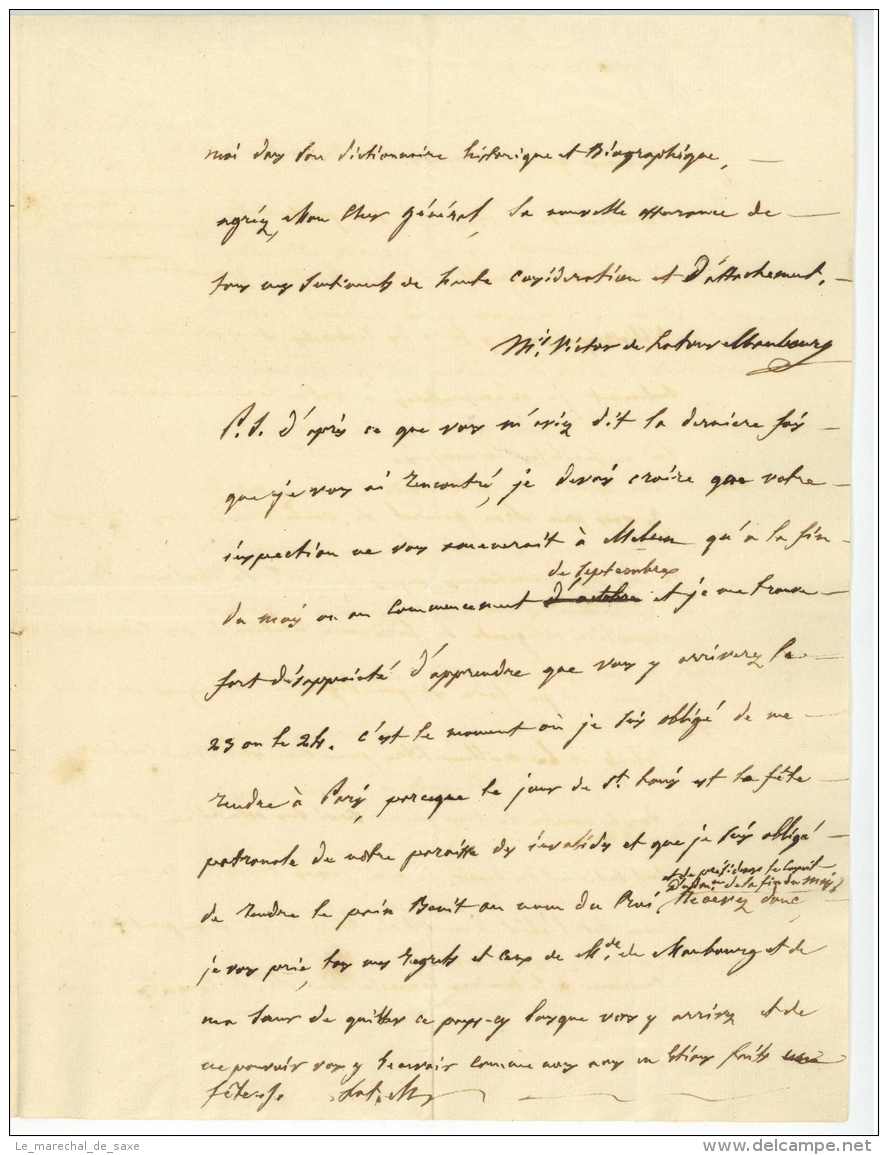 moi dans son dictionnaire historique et Biographique,
agréez, Mon Cher Général, la nouvelle assurance de
tous mes sentiments de haute considération et d'attachement.
M.is Victor de Latour Maubourg
P.S. d'après ce que vous m'aviez dit la derniere fois
que je vous ai rencontré, je devois croire que votre
inspection ne vous ameneroit à Melun qu'à la fin
de septembre
du mois ou au commencement d'octobre et je me trouve
fort désappointé d'apprendre que vous y arriverez le
23 ou le 24. c'est le moment où je suis obligé de me
rendre à Paris, parceque le jour de St. Louis est la fête
patronale de notre paroisse des invalides et que je suis obligé
et de présider le Conseil
d'adm.on de la fin du mois
de rendre le pain Benit au nom du Roi Recevez donc,
je vous prie, tous mes regrets et ceux de M.de de Maubourg et de
ma soeur de quitter ce pays-cy lorsque vous y arrivez et de
ne pouvoir vous y recevoir comme nous nous en étions faits une
fête. Lat. M
Le_marechal_de_saxe
www.delcampe.net